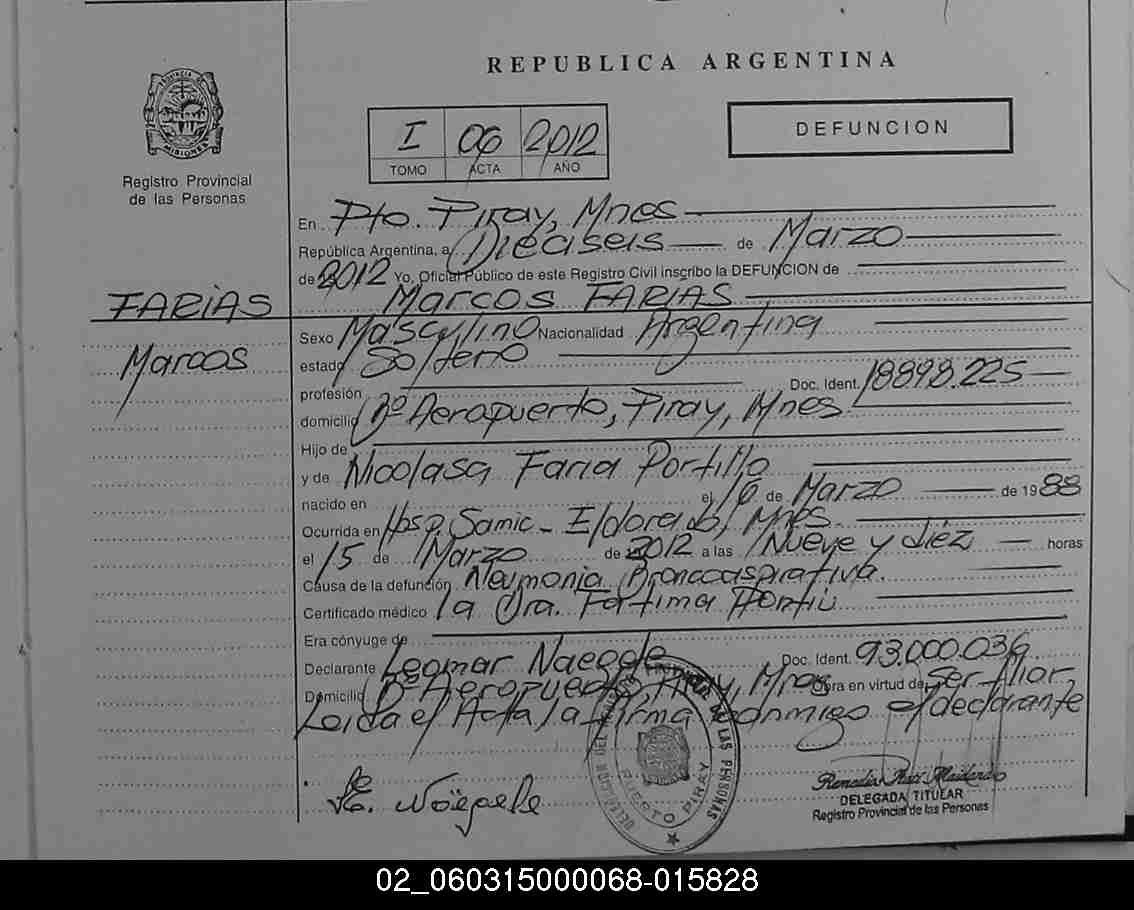 REPUBLICA ARGENTINA
PROVINCIA D
MISIONES
Registro Provincial
de las Personas
I 06 2012
TOMO ACTA AÑO
DEFUNCION
En Pto. Piray, Mnes
República Argentina, a Dieciseis de Marzo
de 2012 Yo, Oficial Público de este Registro Civil inscribo la DEFUNCION de
FARIAS
MARCOS FARIAS
Marcos
Sexo Masculino Nacionalidad Argentina
estado Soltero
profesión Doc. Ident. 18898.225
domicilio Bº Aeropuerto, Piray, Mnes
Hijo de
y de Nicolasa Faria Portillo
nacido en el 16 de Marzo de 1988
Ocurrida en Hosp. Samic - Eldorado, Mnes
el 15 de Marzo de 2012 a las Nueve y diéz horas
Causa de la defunción Neumonia Broncoaspirativa
Certificado médico la Dra. Fatima
Era cónyuge de
Declarante Leomar Naegele Doc. Ident. 93.000.036
Domicilio Bº Aeropuerto, Piray, Mnes Obra en virtud de
Leida el Acta la firma conmigo el declarante
DELEGADA TITULAR
Registro Provincial de las Personas
PUERTO PIRAY
DE LAS PERSONAS
02_060315000068-015828